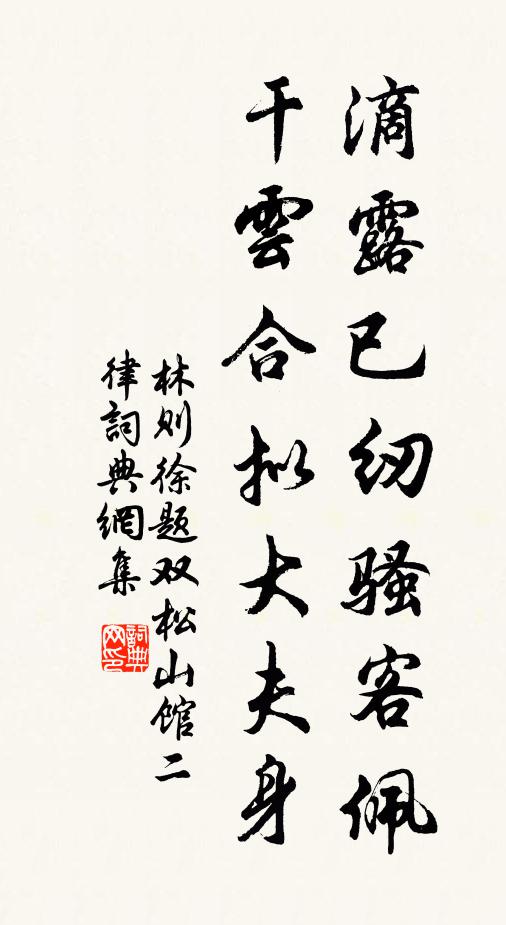 滴露已纫骚客佩
干雲合拟大夫身
林则徐题双松山馆二
律詞典網集
詞典
网印